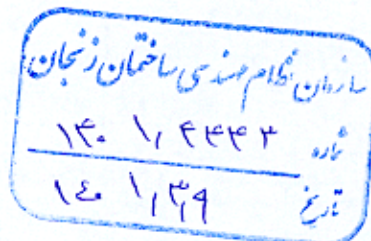 سازمان نظام مهندسی ساختمان زنجان
شماره ۱۴۰۱/۴۴۴۲
تاریخ ۱۴۰۱/۳/۱۹